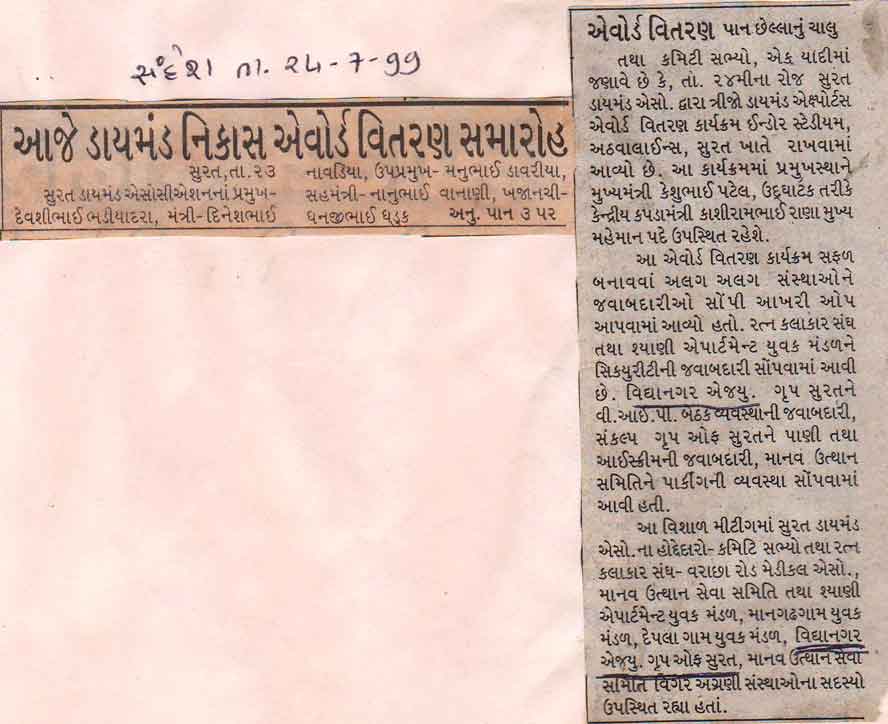 સંદેશ તા. ૨૪-7-99
આજે ડાયમંડ નિકાસ એવોર્ડ વિતરણ સમારોહ
સુરત,તા.૨૩
સુરત ડાયમંડ એસોસીએશનનાં પ્રમુખ-
દેવશીભાઈ ભડીયાદરા, મંત્રી-દિનેશભાઈ
નાવડિયા, ઉપપ્રમુખ- મનુભાઈ ડાવરીયા,
સહમંત્રી-નાનુભાઈ વાનાણી, ખજાનચી-
ધનજીભાઈ ધડુક અનુ. પાન ૩ પર
એવોર્ડ વિતરણ પાન છેલ્લાનું ચાલુ
તથા કમિટી સભ્યો, એક યાદીમાં
જણાવે છે કે, તા. ૨૪મીના રોજ સુરત
ડાયમંડ એસો. દ્વારા ત્રીજો ડાયમંડ એક્ષ્પોર્ટસ
એવોર્ડ વિતરણ કાર્યક્રમ ઈન્ડોર સ્ટેડીયમ,
અઠવાલાઈન્સ, સુરત ખાતે રાખવામાં
આવ્યો છે. આ કાર્યક્રમમાં પ્રમુખસ્થાને
મુખ્યમંત્રી કેશુભાઈ પટેલ, ઉદ્ઘાટક તરીકે
કેન્દ્રીય કપડામંત્રી કાશીરામભાઈ રાણા મુખ્ય
મહેમાન પદે ઉપસ્થિત રહેશે.
આ એવોર્ડ વિતરણ કાર્યક્રમ સફળ
બનાવવાં અલગ અલગ સંસ્થાઓને
જવાબદારીઓ સોંપી આખરી ઓપ
આપવામાં આવ્યો હતો. રત્ન કલાકાર સંઘ
તથા શ્યાણી એપાર્ટમેન્ટ યુવક મંડળને
સિકયુરીટીની જવાબદારી સોંપવામાં આવી
છે. વિદ્યાનગર એજયુ. ગૃપ સુરતને
વી.આઈ.પી. બેઠકવ્યવસ્થાની જવાબદારી,
સંકલ્પ ગૃપ ઓફ સુરતને પાણી તથા
આઈસ્ક્રીમની જવાબદારી, માનવ ઉત્થાન
સમિતિને પાર્કીંગની વ્યવસ્થા સોંપવામાં
આવી હતી.
આ વિશાળ મીટીંગમાં સુરત ડાયમંડ
એસો.ના હોદ્દેદારો-કમિટિ સભ્યો તથા રત્ન
કલાકાર સંઘ- વરાછા રોડ મેડીકલ એસો.,
માનવ ઉત્થાન સેવા સમિતિ તથા શ્યાણી
એપાર્ટમેન્ટ યુવક મંડળ, માનગઢગામ યુવક
મંડળ, દેપલા ગામ યુવક મંડળ, વિદ્યાનગર
એજયુ. ગૃપ ઓફ સુરત, માનવ ઉત્થાન સેવા
સમિતિ વિગેરે અગ્રણી સંસ્થાઓના સદસ્યો
ઉપસ્થિત રહ્યા હતાં.